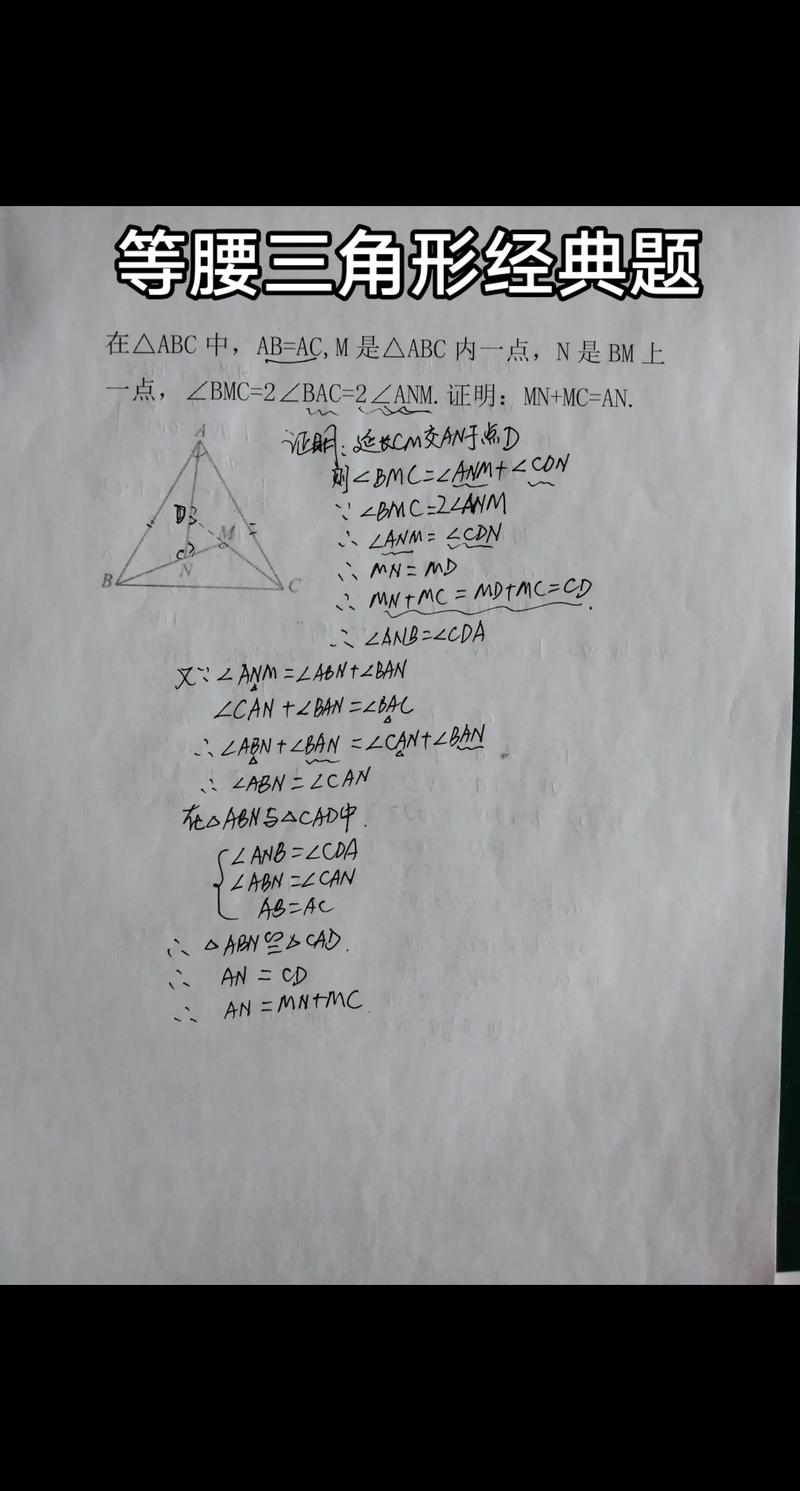 等腰三角形经典题
在△ABC 中，AB=AC, M 是△ABC 内一点，N 是 BM 上
一点，∠BMC=2∠BAC=2∠ANM. 证明：MN+MC=AN.
A
证明：延长CM交AN于点D
则∠BMC=∠ANM+∠CDN
∵ ∠BMC=2∠ANM
∴ ∠ANM=∠CDN
∴ MN=MD
∴ MN+MC=MD+MC=CD.
∴ ∠ANB=∠CDA
D
M
N
B
C
又∵∠ANM=∠ABN+∠BAN
∠CAN+∠BAN=∠BAC
∴∠ABN+∠BAN=∠CAN+∠BAN
∴ ∠ABN=∠CAN
在△ABN与△CAD中.
∠ANB=∠CDA
∠ABN=∠CAN
AB=AC
∴ △ABN≌△CAD.
∴ AN=CD
∴ AN=MN+MC.